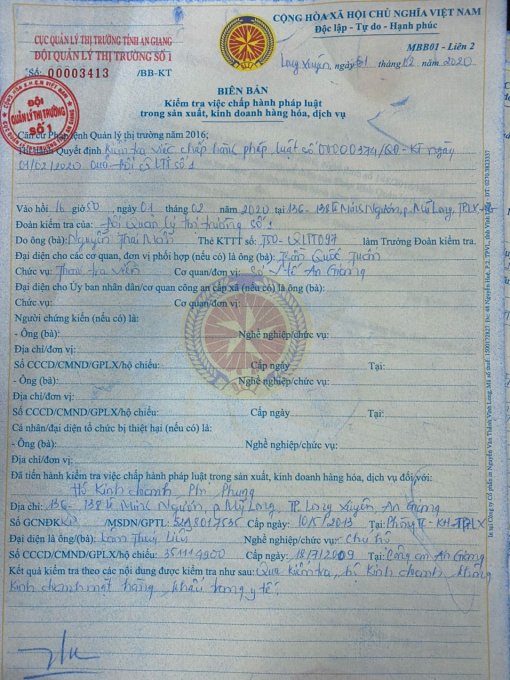 CỤC QUẢN LÝ THỊ TRƯỜNG TỈNH AN GIANG
ĐỘI QUẢN LÝ THỊ TRƯỜNG SỐ 1
Số: 00003413 /BB-KT
CỘNG HÒA XÃ HỘI CHỦ NGHĨA VIỆT NAM
Độc lập - Tự do - Hạnh phúc
MBB01 - Liên 2
Long Xuyên, ngày 01 tháng 02 2020
ĐỘI
QUẢN LÝ THỊ TRƯỜNG
SỐ 1
BIÊN BẢN
Kiểm tra việc chấp hành pháp luật
trong sản xuất, kinh doanh hàng hóa, dịch vụ
Căn cứ Pháp lệnh Quản lý thị trường năm 2016;
Thi hành Quyết định kiểm tra việc chấp hành pháp luật số 00000374/QĐ-KT ngày
01/02/2020 của Đội QLTT số 1
Vào hồi 16 giờ 50, ngày 01 tháng 02 năm 2020 tại 136-138 Lê Minh Ngươn, p. Mỹ Long, TPLX-AG
Đoàn kiểm tra của: Đội Quản lý thị trường số 1
Do ông (bà): Nguyễn Thái Thẻ KTTT số: T50-QLTT097 làm Trưởng Đoàn kiểm tra.
Đại diện cho các cơ quan, đơn vị phối hợp (nếu có) là ông (bà): Trần Quốc Tuấn
Chức vụ: Thanh tra viên Cơ quan/đơn vị: Sở Y tế An Giang
Đại diện cho Ủy ban nhân dân/cơ quan công an cấp xã (nếu có) là ông (bà):
Chức vụ: Cơ quan/đơn vị:
Người chứng kiến (nếu có) là:
- Ông (bà): Nghề nghiệp/chức vụ:
Địa chỉ/đơn vị:
Số CCCD/CMND/GPLX/hộ chiếu: Cấp ngày Tại:
- Ông (bà): Nghề nghiệp/chức vụ:
Địa chỉ/đơn vị:
Số CCCD/CMND/GPLX/hộ chiếu: Cấp ngày Tại:
Cá nhân/đại diện tổ chức bị thiệt hại (nếu có) là:
- Ông (bà): Nghề nghiệp/chức vụ:
Địa chỉ/đơn vị:
Đã tiến hành kiểm tra việc chấp hành pháp luật trong sản xuất, kinh doanh hàng hóa, dịch vụ đối với:
Hộ kinh doanh Phi Phụng
Địa chỉ: 136-138 Lê Minh Ngươn, p Mỹ Long, TP Long Xuyên, An Giang
Số GCNĐKKD /MSDN/GPTL: Cấp ngày: 10/5/2013 Tại: Phòng TC-KH-TPLX
Đại diện là ông/bà: Lâm Thúy Nghề nghiệp/Chức vụ: Chủ hộ
Số CCCD/CMND/GPLX/hộ chiếu: 351114900 Cấp ngày: 18/7/2009 Tại: Công an An Giang
Kết quả kiểm tra theo các nội dung được kiểm tra như sau: Qua kiểm tra, hộ kinh doanh không
kinh doanh mặt hàng khẩu trang y tế.